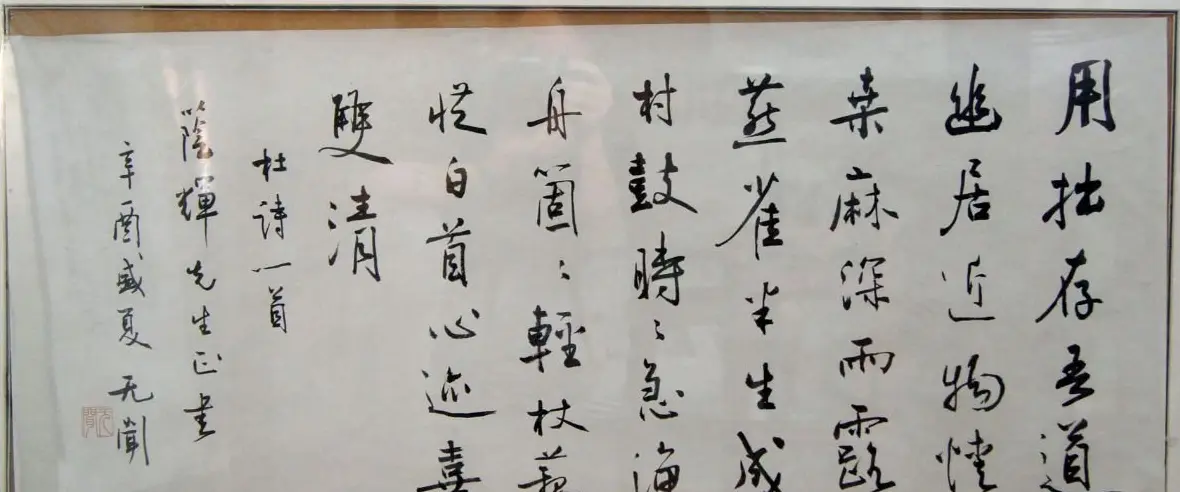 用拙存吾道
幽居近物情
桒麻深雨露
燕雀半生成
村鼓時〻急漁
舟箇〻輕杖藜
從白首心迹喜
雙清
杜詩一首
蔭輝先生正書
辛酉盛夏 无聞